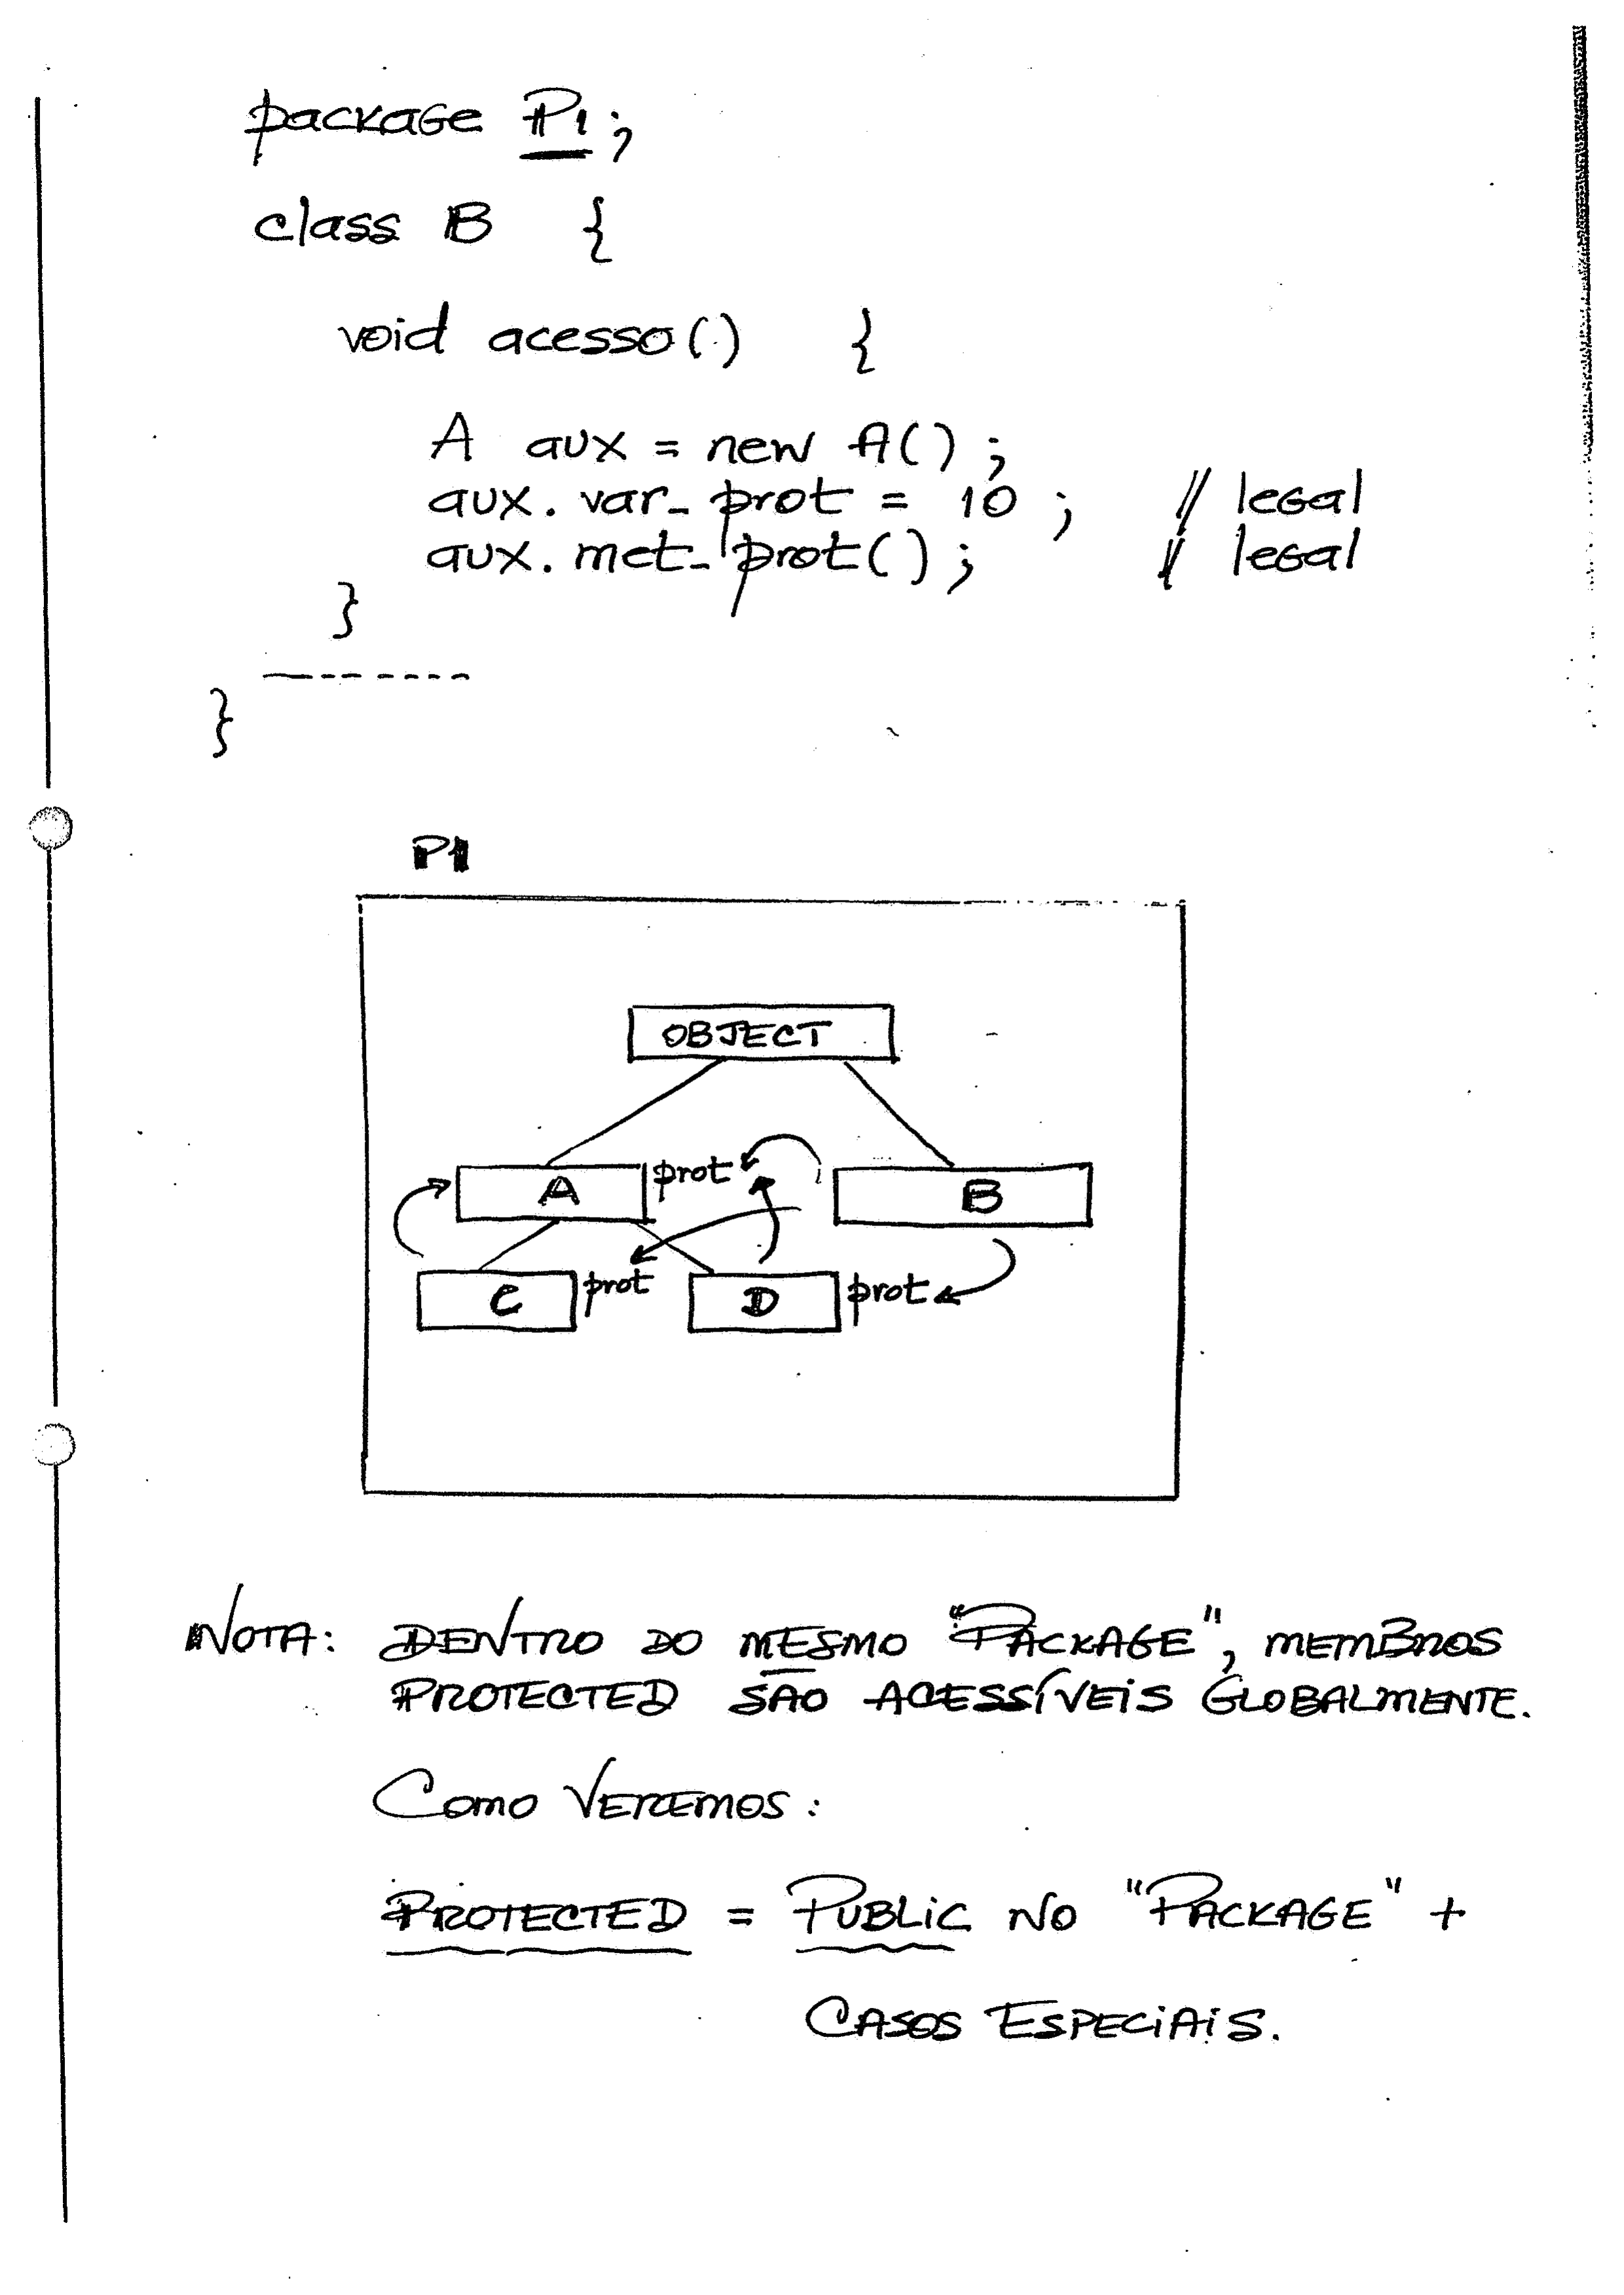 package P1;
class B {
void acesso() {
A aux = new A();
aux.var_prot = 10; // legal
aux.met_prot(); // legal
}
--------
}
P1
OBJECT
A prot B
C prot D prot
NOTA: DENTRO DO MESMO "PACKAGE", MEMBROS
PROTECTED SÃO ACESSÍVEIS GLOBALMENTE.
COMO VEREMOS:
PROTECTED = PUBLIC NO "PACKAGE" +
CASOS ESPECIAIS.